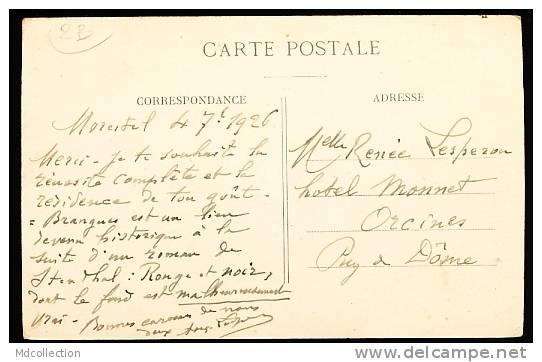 2B
CARTE POSTALE
CORRESPONDANCE
ADRESSE
Morestel 4 7b 1926
Merci - Je te souhaite la
réussite complète et la
résidence de ton goût -
= Brangues est un lieu
devenu historique à la
suite d'un roman de
Stendhal : Rouge et noir,
dont le fond est malheureusement
vrai - Bonnes caresses de nous
deux
Melle Renée Lesperou
hotel Monnet
Orcines
Puy de Dôme
©Mdcollection
www.delcampe.net